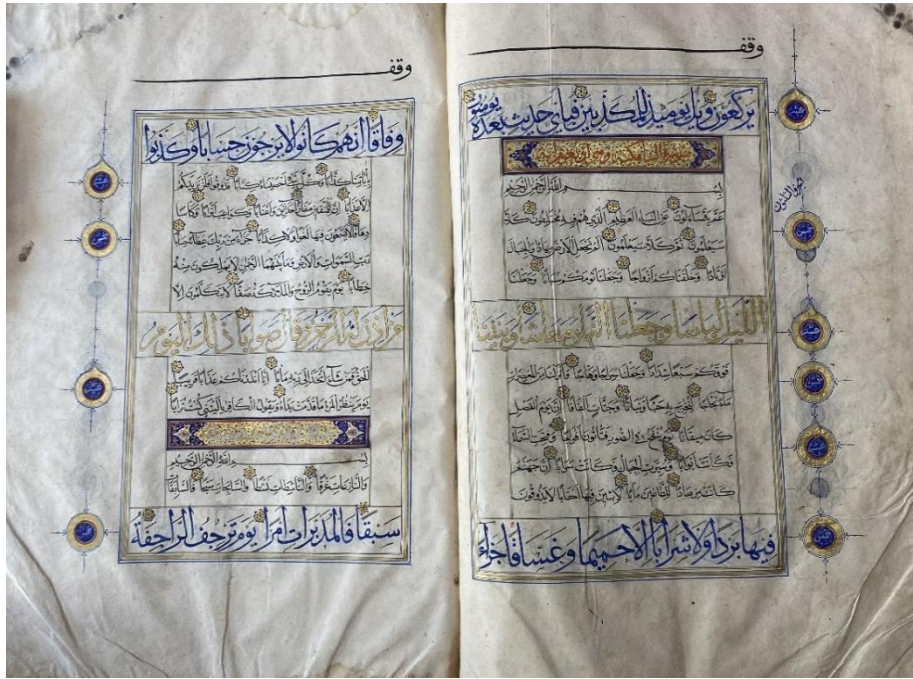 وقف
يركعون ويل يوميذ للمكذبين فبأي حديث بعده يومنون
بسم الله الرحمن الرحيم
عم يتساءلون عن النبإ العظيم الذي هم فيه مختلفون كلا
سيعلمون ثم كلا سيعلمون الم نجعل الارض مهادا والجبال
اوتادا وخلقناكم ازواجا وجعلنا نومكم سباتا وجعلنا
الليل لباسا وجعلنا النهار معاشا وبنينا
فوقكم سبعا شدادا وجعلنا سراجا وهاجا وانزلنا من المعصرات
ماء ثجاجا لنخرج به حبا ونباتا وجنات الفافا ان يوم الفصل
كان ميقاتا يوم ينفخ في الصور فتأتون افواجا وفتحت السماء
فكانت ابوابا وسيرت الجبال فكانت سرابا ان جهنم
كانت مرصادا للطاغين مآبا لابثين فيها احقابا لا يذوقون
فيها بردا ولا شرابا الا حميما وغساقا جزاء
وقف
وفاقا انهم كانوا لا يرجون حسابا وكذبوا
بآياتنا كذابا وكل شيء احصيناه كتابا فذوقوا فلن نزيدكم
الا عذابا ان للمتقين مفازا حدائق واعنابا وكواعب اترابا وكأسا
دهاقا لا يسمعون فيها لغوا ولا كذابا جزاء من ربك عطاء حسابا
رب السموات والارض وما بينهما الرحمن لا يملكون منه
خطابا يوم يقوم الروح والملائكة صفا لا يتكلمون الا
من اذن له الرحمن وقال صوابا ذلك اليوم
الحق فمن شاء اتخذ الى ربه مآبا انا انذرناكم عذابا قريبا
يوم ينظر المرء ما قدمت يداه ويقول الكافر يا ليتني كنت ترابا
بسم الله الرحمن الرحيم
والنازعات غرقا والناشطات نشطا والسابحات سبحا فالسابقات
سبقا فالمدبرات امرا يوم ترجف الراجفة